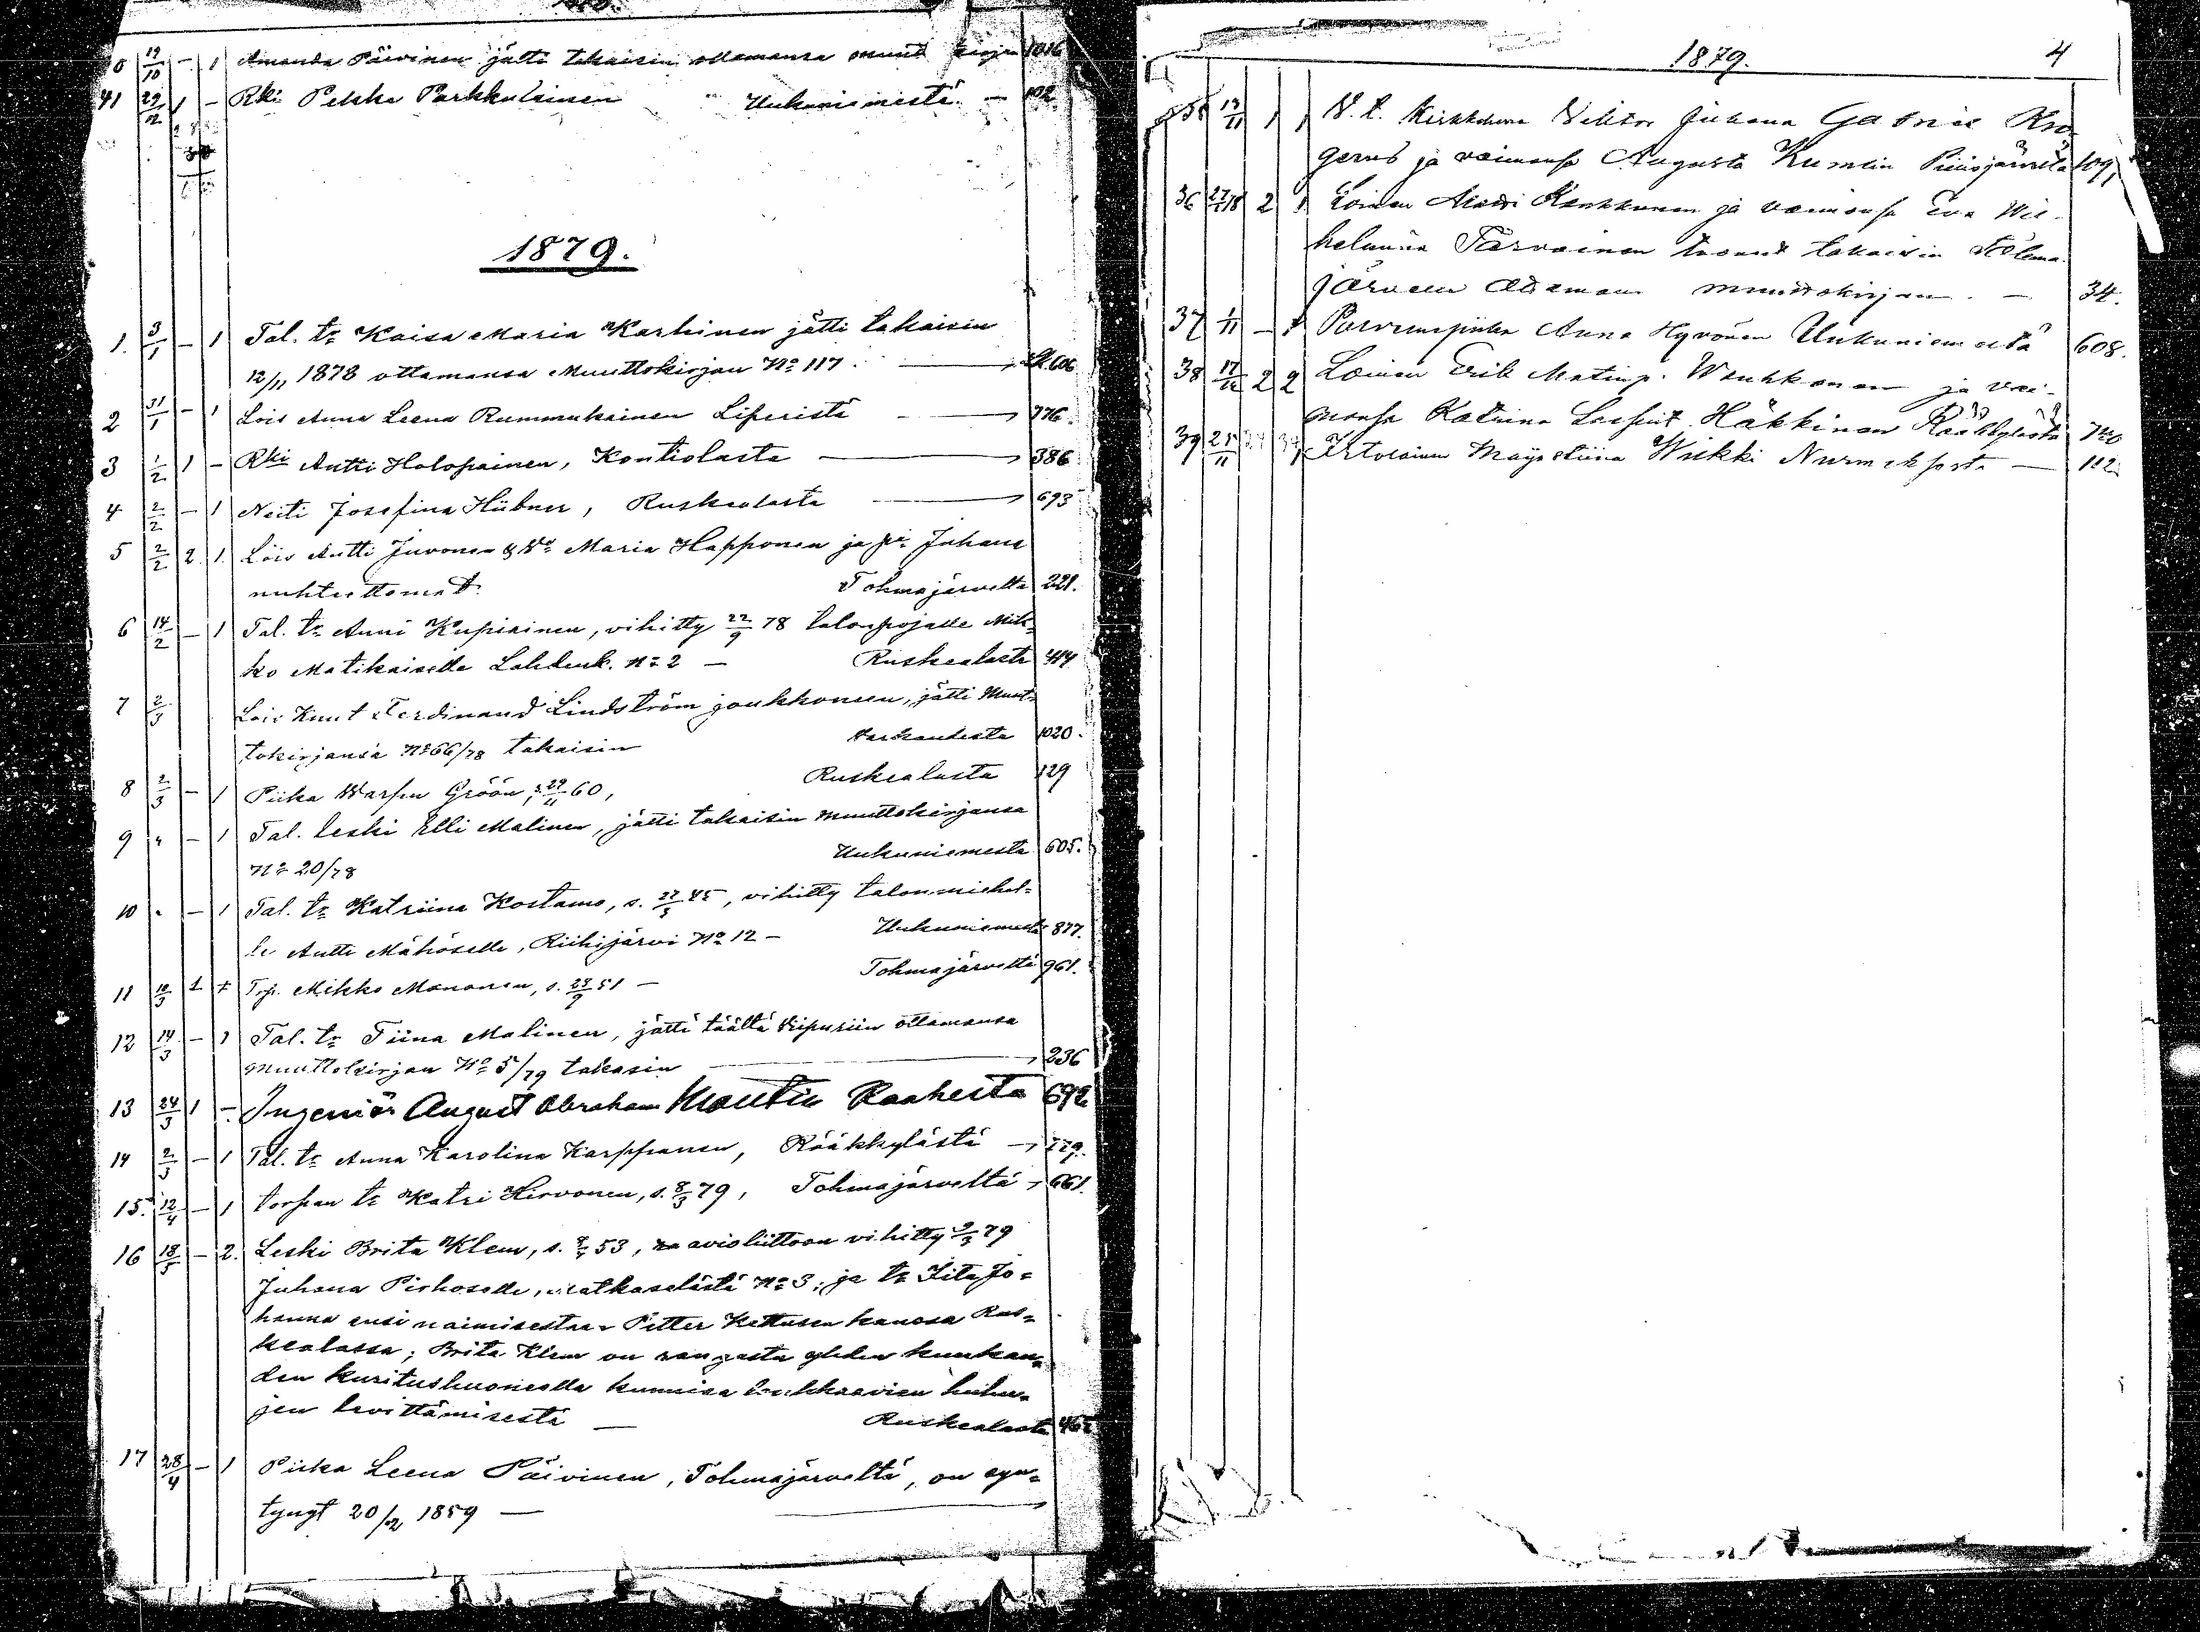 40 19/10 - 1 Amanda Päivinen jätti takaisin ottamansa muut 1016
41 29/12 1 - Rki Pekka Parkkulainen Uukuniemestä. — 102.
1879.
1. 3/1 - 1 Tal. tr Kaisa Maria Karhinen jätti takaisin
12/11 1878 ottamansa Muuttokirjan No 117. — 606
2 31/1 - 1 Lois Anna Leena Rummukainen Liperistä — 776.
3 1/2 1 - Rki Antti Holopainen, Kontiolasta — 386
4 2/2 - 1 Neiti Josefina Hübner, Ruskealasta — 693
5 2/2 2 1. Lois Antti Juvonen & Vo Maria Happonen ja pa Juhana
nuhteettomat. Tohmajärveltä 221.
6 14/2 - 1 Tal. tr Anni Kupiainen, vihitty 22/9 78 talonpojalle Mik=
ko Matikaiselle Lahdenk. No 2 — Ruskealasta 414
7 2/3 Lois Knut Ferdinand Lindström joukkoneen, jätti Muut=
tokirjansa No 66/78 takaisin Varkaudesta 1020.
8 2/3 - 1 Piika Warpu Gröön, s. 29/11 60, Ruskealasta 129
9 " - 1 Tal. leski Elli Malinen, jätti takaisin muuttokirjansa
No 20/78 Uukuniemestä 605.
10 " - 1 Tal. tr Katriina Kostamo, s. 27/5 45, vihitty talonmiehel=
le Antti Mähöselle, Riihijärvi No 12 — Uukuniemestä 877.
11 10/3 1 + Trp. Mikko Manonen, s. 29/9 51 — Tohmajärveltä 961.
12 14/3 - 1 Tal. tr Tiina Malinen, jätti täältä Wipuriin ottamansa
muuttokirjan No 5/79 takasin — 236
13 24/3 1 - Ingeniör August Abraham Krautin Raahesta 692
14 2/3 - 1 Tal. tr Anna Karolina Karppanen, Rääkkylästä — 779.
15. 12/4 - 1 torpan tr Katri Hirvonen, s. 8/3 79, Tohmajärveltä 661.
16 18/3 - 2. Leski Brita Klem, s. 53, avioliittoon vihitty 9/3 79
Juhana Pirhoselle, Matkaselästä No 3; ja tr Iita Jo=
hanna ensi naimisestaan Petter Kettusen kanssa Rus=
kealassa; Brita Klem on rangastu yhden kuukau=
den kuritushuoneella kunniaa loukkaavien huhu=
jen levittämisestä — Ruskealasta 465
17 28/4 - 1 Piika Leena Päivinen, Tohmajärveltä, on syn=
tynyt 20/2 1859 —
1879. 4
35 13/11 1 1 V. t. Kirkkoherra Viktor Juhana Gabriel Kro=
gerus ja vaimonsa Augusta Kumlin Pielisjärveltä 109,
36 27/1 78 2 1 Loinen Matti Kankkunen ja vaimonsa Eva Wil=
helmiina Tarvainen tuonut takaisin Tohma=
järveen ottaman muuttokirjan. — 34.
37 1/11 - 1 Anna Hyvönen Uukuniemestä 608.
38 17/12 2 2 Loinen Erik Matinp. Wouhkonen ja vai=
monsa Katriina Häkkinen Rääkkylästä 740
39 25/11 Itsellinen Wiikki Nurmeksesta — 112